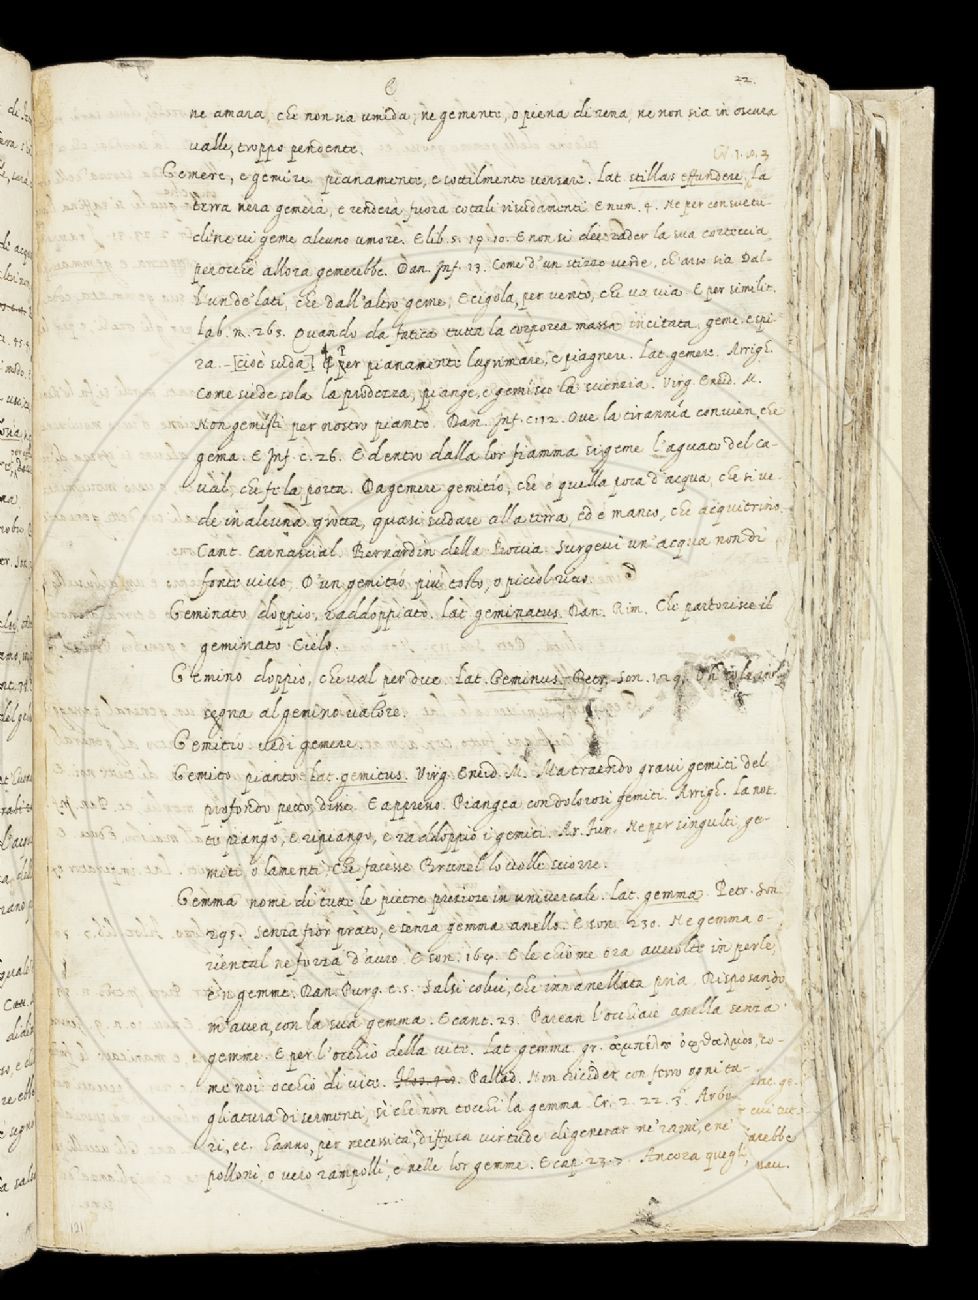 G 22.
ne amara, che non sia umida, ne gemente, o piena di rena, ne non sia in oscura
valle, troppo pendente.
Cr. 1. 8. 3
Gemere, e gemire pianamente, e sottilmente versare. Lat. stillas effundere. La
terra nera gemerà, e renderà fuora cotali risudamenti E num. 4. Ne per consuetu-
dine vi geme alcuno umore. E lib. 5. 19. 10. E non si dee rader la sua corteccia
perocchè allora gemerebbe. Dan. Inf. 13. Come d'un stizzo verde, ch'arso sia Dal-
l'un de' lati, che dall'altro geme, E cigola, per vento, che va via E per similit.
Lab. n. 263. Quando da fatica tutta la corporea massa incitata, geme e spi-
ra. [cioè suda] E per pianamente lagrimare, e piagnere. Lat. gemere. Arrigh.
Come siede sola la prodezza, piange, e gemisco la scienzia. Virg. Eneid. M.
Non gemisti per nostro pianto. Dan. Inf. c. 12. Ove la tirannia convien, che
gema. E Inf. c. 26. E dentro dalla lor fiamma si geme l'aguato del ca-
val, che fe la porta. Da gemere gemitìo, che è quella poca d'acqua, che si ve-
de in alcuna grotta, quasi sudare alla terra, ed è manco, che acquitrino.
Cant. Carnascial. Bernardin della Boccia. Surgevi un'acqua non di
fonte vivo, D'un gemitío più tosto, o picciol rivo.
Geminato doppio, raddoppiato. lat. geminatus. Dan. Rim. Che partorisce il
geminato Cielo.
Gemino doppio, che val per due. Lat. Geminus. Petr. son.
segna al gemino valore.
Gemitío vedi gemere.
Gemito pianto. Lat. gemitus. Virg. Eneid. M. Ma traendo gravi gemiti del
profondo petto, disse. E appresso. Piangea con dolorosi gemiti. Arrigh. La not-
te piango, e ripiango, e raddoppio i gemiti. Ar. Fur. Ne per singulti, ge-
miti, o lamenti, che facesse Brunel lo volle sciorre.
Gemma nome di tutte le pietre preziose in universale. Lat. gemma. Petr. Son.
295. Senza fior prato, e senza gemma anello. E son. 230. Ne gemma o-
riental ne forza d'auro. E son. 164. E le chiome ora avvolte in perle,
e'n gemme. Dan. Purg. c. 5. Salsi colui, che innanellata pria Disposando
m'avea, con la sua gemma. E cant. 23. Parean l'occhiaie anella senza
gemme. E per l'occhio della vite. Lat. gemma. gr. ἀμπέλου ὀφθαλμος, co-
me noi occhio di vite. Pallad. Non ricider con ferro ogni ta-
gliatura di sermenti, sì che non tocchi la gemma. Cr. 2. 22. 3. Arbo-
ri, ec. hanno, per necessità, diffusa virtude di generar ne' rami, e ne'
polloni, o vero rampolli, e nelle lor gemme. E cap. 23. 7. Ancora quegli,
121